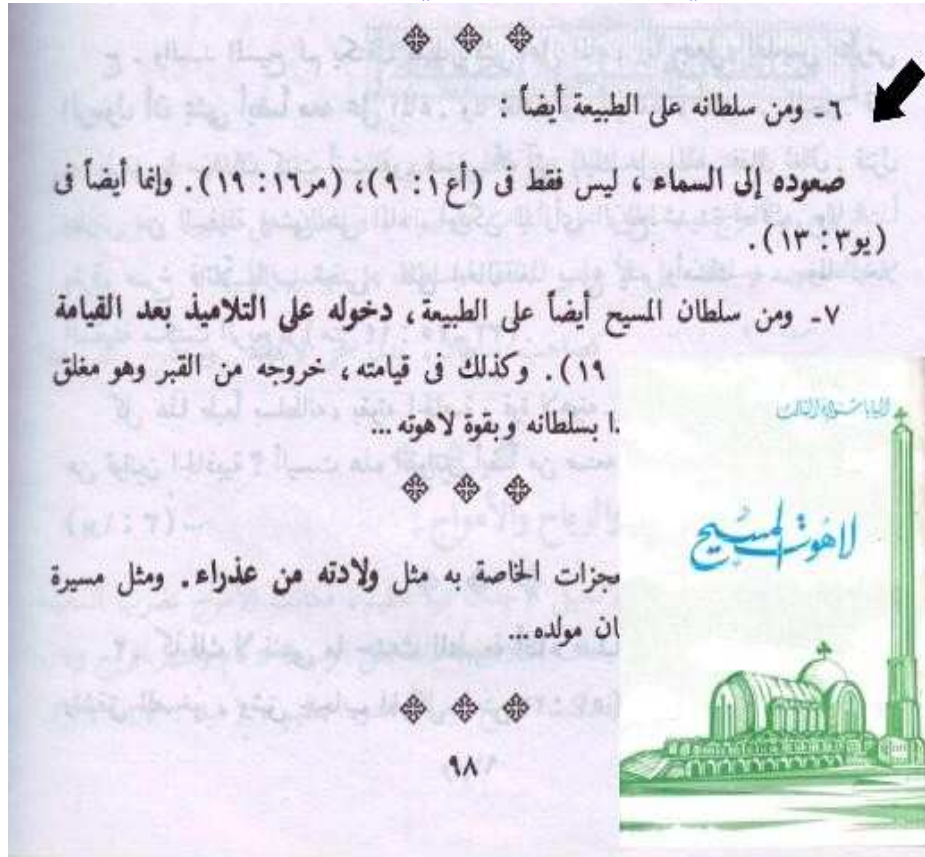 ٦ـ ومن سلطانه على الطبيعة أيضاً :
صعوده إلى السماء ، ليس فقط فى (أع١: ٩)، (مر١٦: ١٩). وإنما أيضاً فى
(يو٣: ١٣).
٧ـ ومن سلطان المسيح أيضاً على الطبيعة، دخوله على التلاميذ بعد القيامة
١٩). وكذلك فى قيامته، خروجه من القبر وهو مغلق
ا بسلطانه وبقوة لاهوته...
عجزات الخاصة به مثل ولادته من عذراء. ومثل مسيرة
ان مولده...
٩٨
البابا شنوده الثالث
لاهوت المسيح